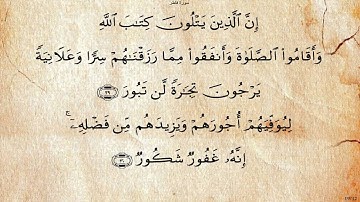 سورة فاطر
إِنَّ ٱلَّذِينَ يَتۡلُونَ كِتَٰبَ ٱللَّهِ
وَأَقَامُواْ ٱلصَّلَوٰةَ وَأَنفَقُواْ مِمَّا رَزَقۡنَٰهُمۡ سِرّٗا وَعَلَانِيَةٗ
يَرۡجُونَ تِجَٰرَةٗ لَّن تَبُورَ ٢٩
لِيُوَفِّيَهُمۡ أُجُورَهُمۡ وَيَزِيدَهُم مِّن فَضۡلِهِۦٓۚ
إِنَّهُۥ غَفُورٞ شَكُورٞ ٣٠